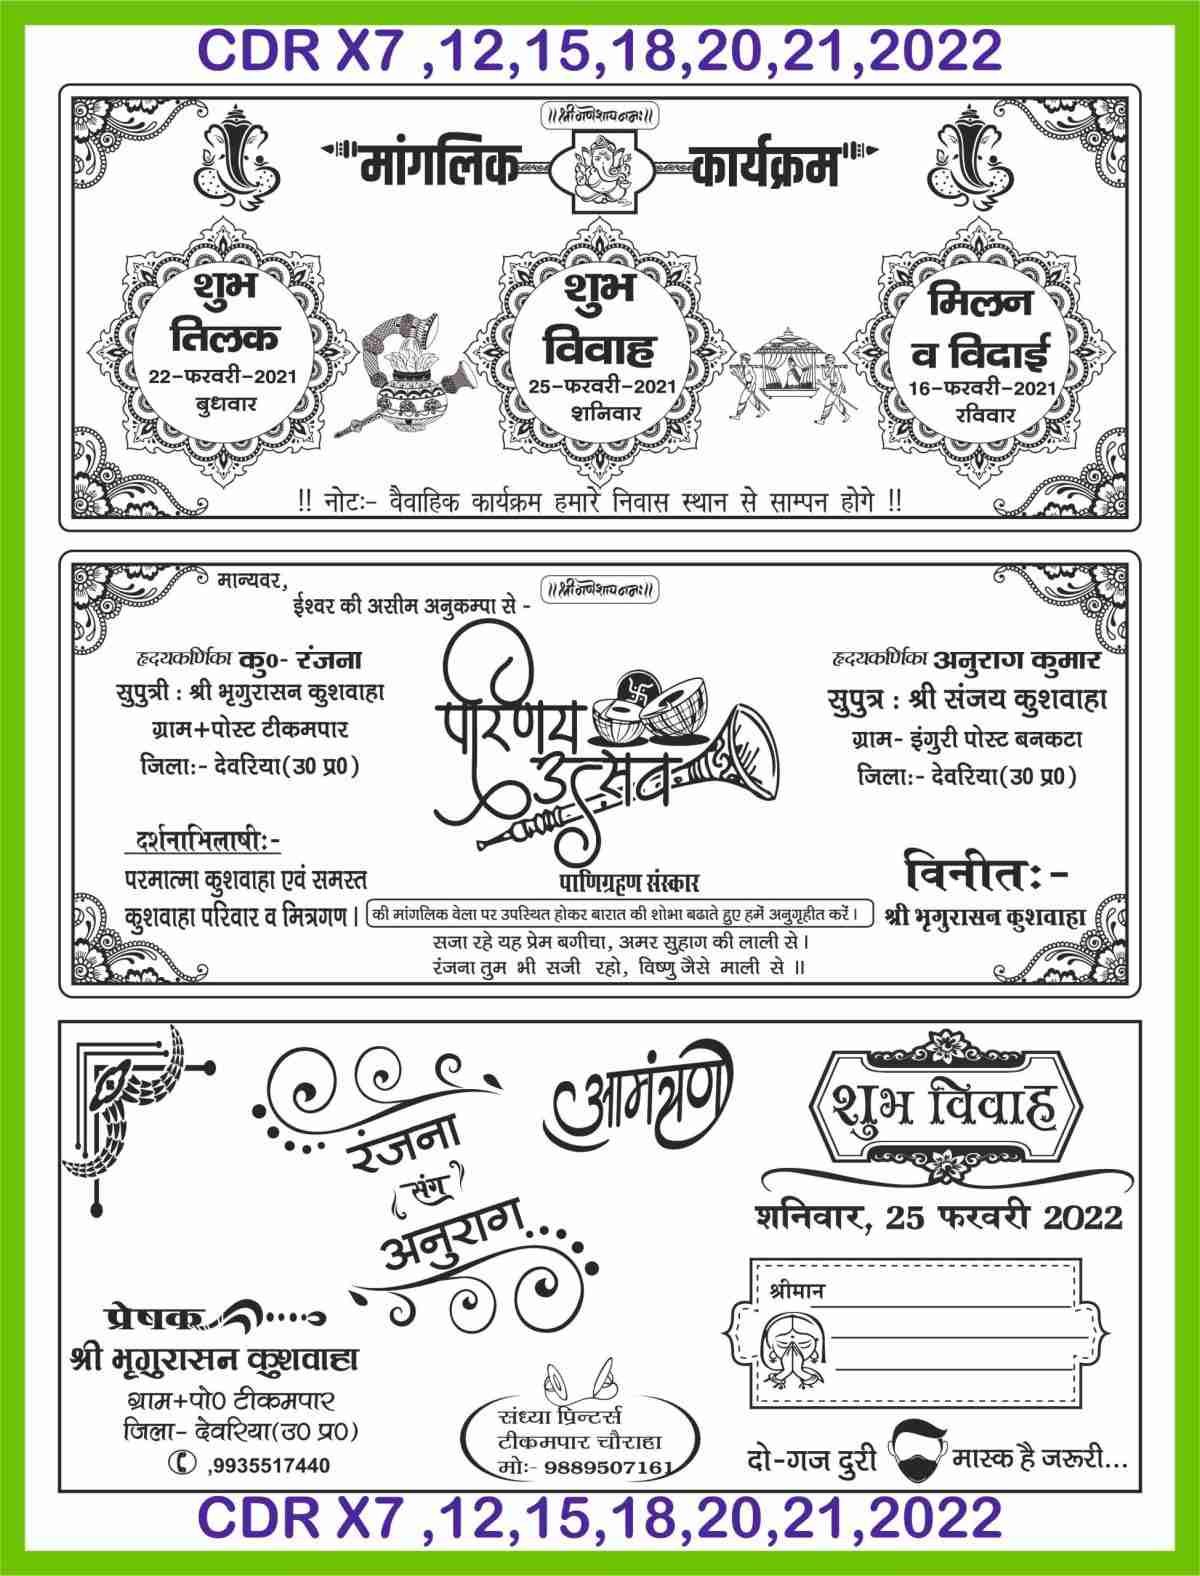 CDR X7 ,12,15,18,20,21,2022
।।श्री गणेशाय नमः।।
मांगलिक कार्यक्रम
शुभ
तिलक
22-फरवरी-2021
बुधवार
शुभ
विवाह
25-फरवरी-2021
शनिवार
मिलन
व विदाई
16-फरवरी-2021
रविवार
!! नोटः- वैवाहिक कार्यक्रम हमारे निवास स्थान से साम्पन होगे !!
मान्यवर,
ईश्वर की असीम अनुकम्पा से -
।।श्री गणेशाय नमः।।
हृदयकर्णिका कु0- रंजना
सुपुत्री : श्री भृगुरासन कुशवाहा
ग्राम+पोस्ट टीकमपार
जिलाः- देवरिया(उ0 प्र0)
परिणय
उत्सव
हृदयकर्णिका अनुराग कुमार
सुपुत्र : श्री संजय कुशवाहा
ग्राम- इंगुरी पोस्ट बनकटा
जिलाः- देवरिया(उ0 प्र0)
दर्शनाभिलाषीः-
परमात्मा कुशवाहा एवं समस्त
कुशवाहा परिवार व मित्रगण।
पाणिग्रहण संस्कार
की मांगलिक वेला पर उपस्थित होकर बारात की शोभा बढाते हुए हमें अनुगृहीत करें।
सजा रहे यह प्रेम बगीचा, अमर सुहाग की लाली से।
रंजना तुम भी सजी रहो, विष्णु जैसे माली से ॥
विनीतः-
श्री भृगुरासन कुशवाहा
रंजना
संग
अनुराग
आमंत्रण
शुभ विवाह
शनिवार, 25 फरवरी 2022
श्रीमान
प्रेषक
श्री भृगुरासन कुशवाहा
ग्राम+पो0 टीकमपार
जिला- देवरिया(उ0 प्र0)
,9935517440
संध्या प्रिन्टर्स
टीकमपार चौराहा
मोः- 9889507161
दो-गज दुरी मास्क है जरूरी...
CDR X7 ,12,15,18,20,21,2022